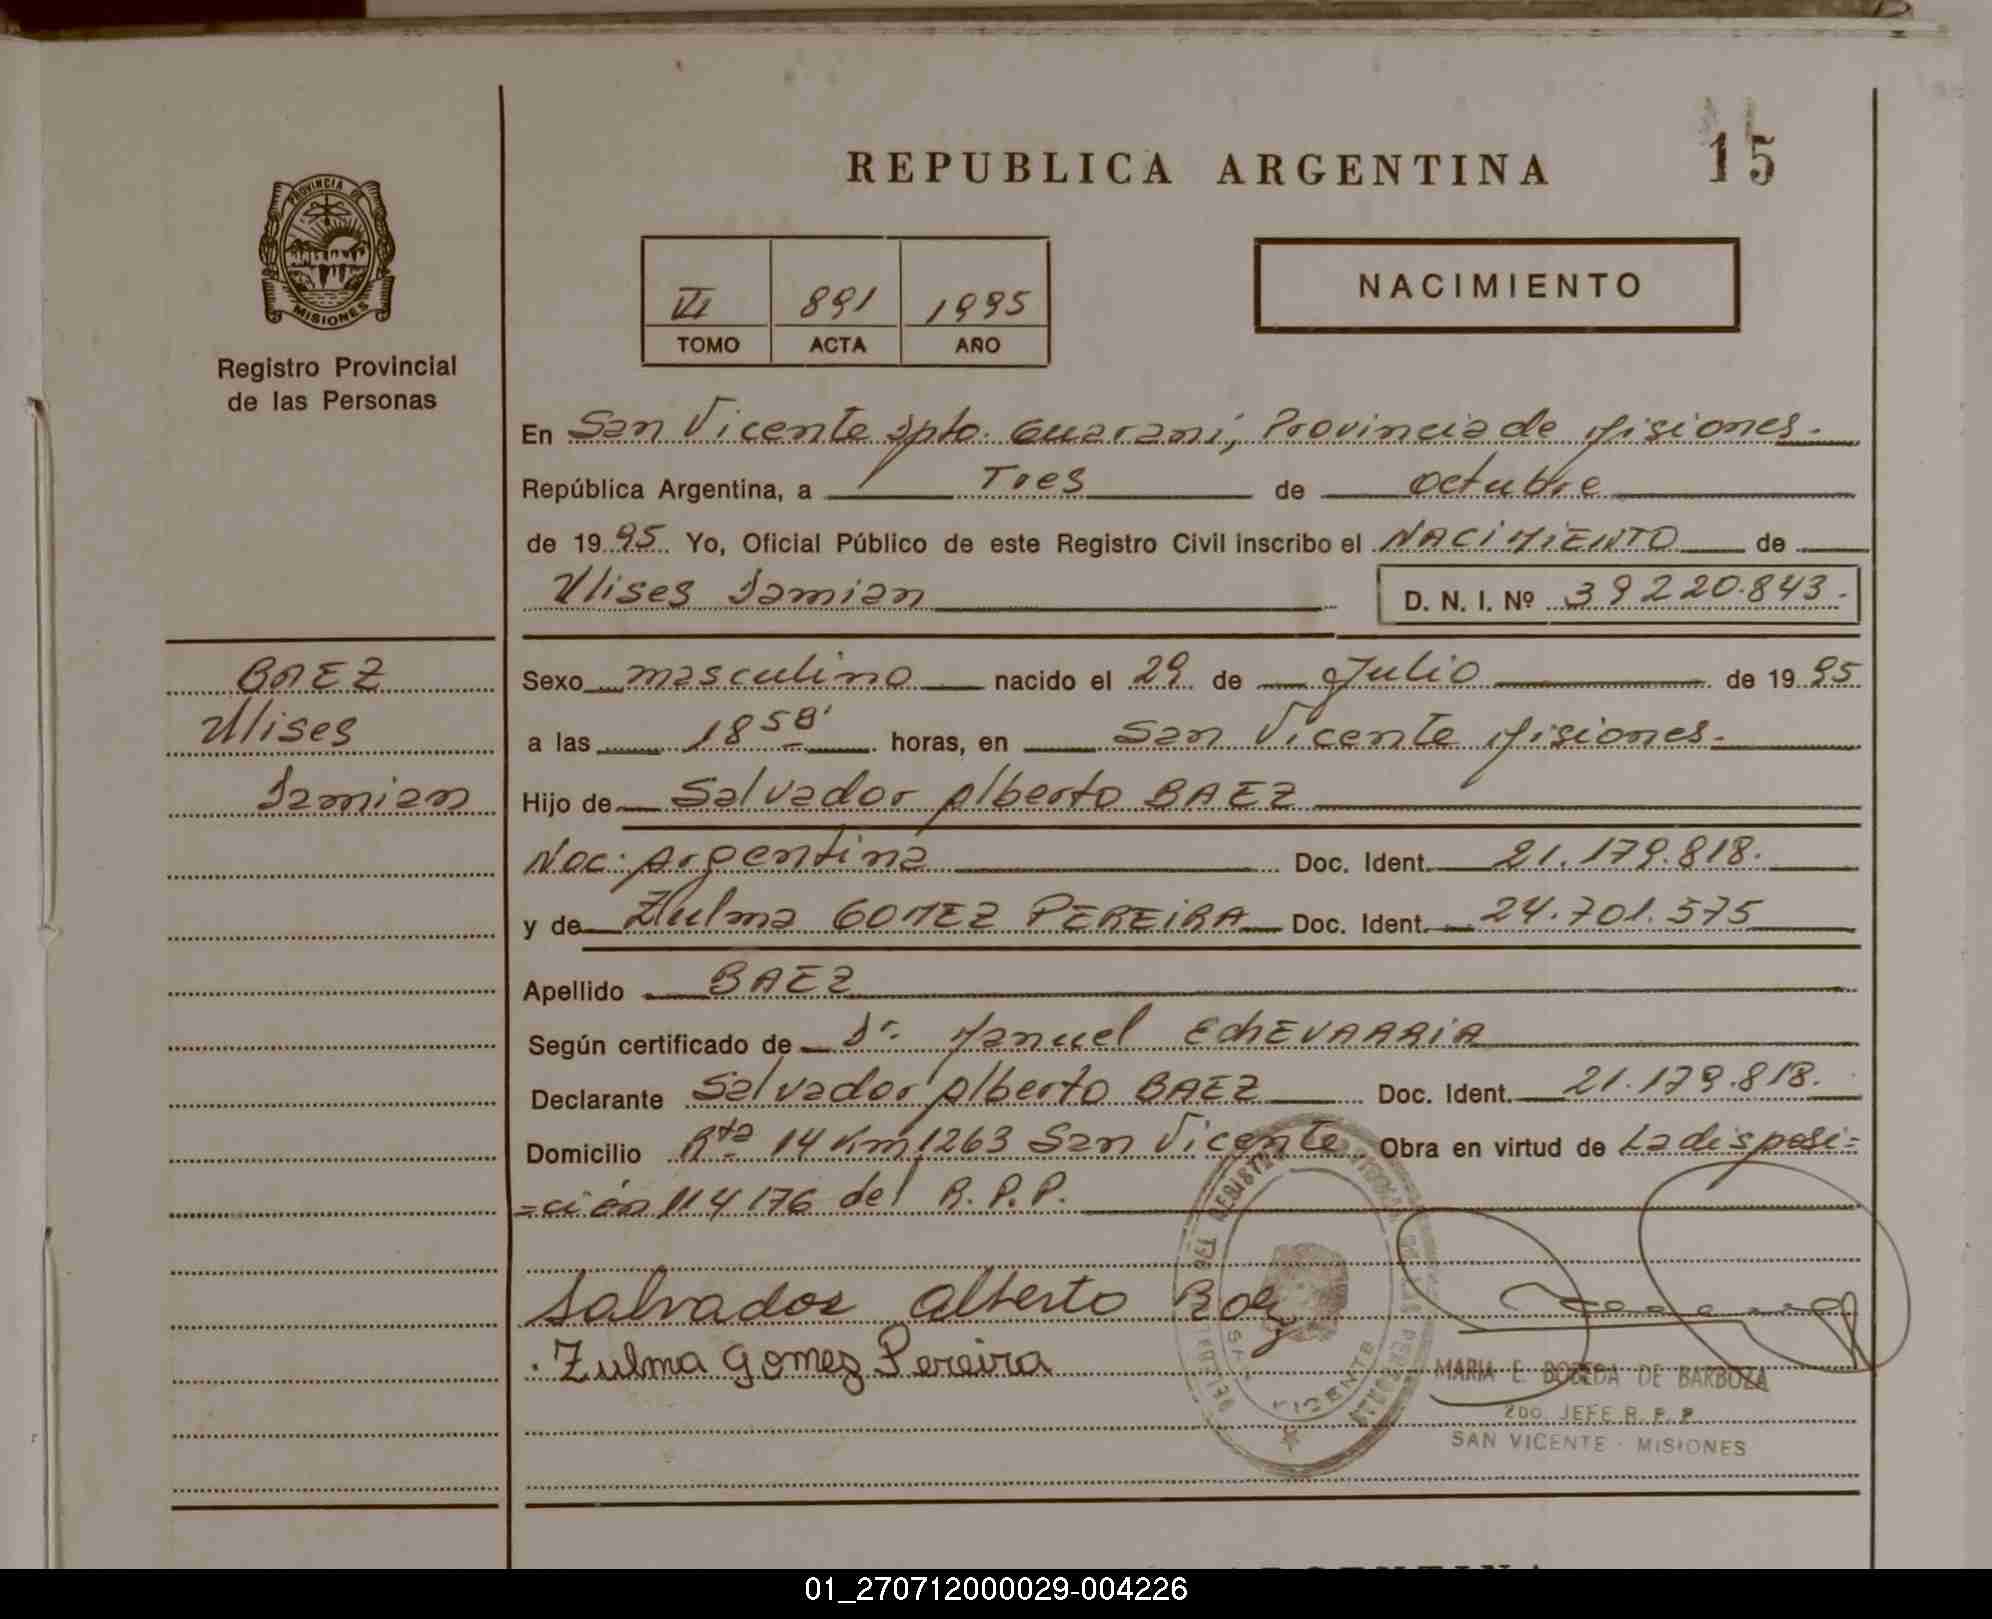 REPUBLICA ARGENTINA
15
PROVINCIA DE
MISIONES
Registro Provincial
de las Personas
VI 891 1995
TOMO ACTA AÑO
NACIMIENTO
En San Vicente Dpto. Guarani, Provincia de Misiones.
República Argentina, a Tres de octubre
de 1995 Yo, Oficial Público de este Registro Civil inscribo el NACIMIENTO de
Ulises Damian D. N. I. Nº 39220.843.
BAEZ
Ulises
Damian
Sexo masculino nacido el 29 de Julio de 1995
a las 18 58' horas, en San Vicente Misiones.
Hijo de Salvador Alberto BAEZ
Nac: Argentina Doc. Ident. 21.179.818.
y de Zulma GOMEZ PEREiRA Doc. Ident. 24.701.575
Apellido BAEZ
Según certificado de Dr. Manuel EchEVARRiA
Declarante Salvador Alberto BAEZ Doc. Ident. 21.179.818.
Domicilio Rta 14 Km 1263 San Vicente Obra en virtud de La disposi=
=ción 114/76 del R.P.P.
Salvador Alberto Baez
Zulma Gomez Pereira
SAN VICENTE
MARIA E. BOBEDA DE BARBOZA
2DO. JEFE R. P. P.
SAN VICENTE - MISIONES
01_270712000029-004226